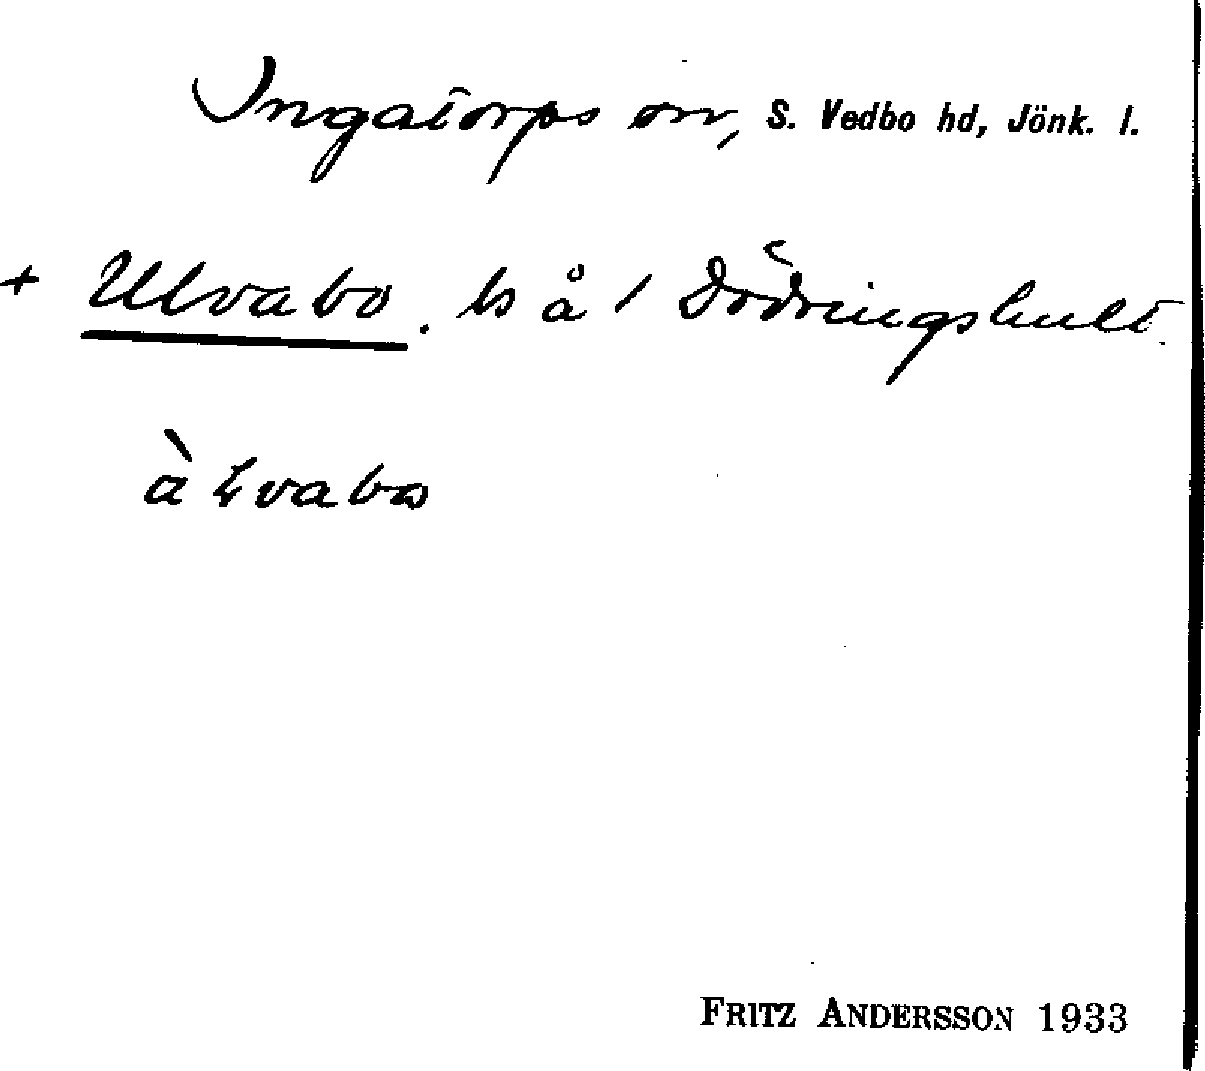 Ingatorps sn, S. Vedbo hd, Jönk. l.
+ Ulvabo. ls å 1 Dödringshult
Fritz Andersson 1933